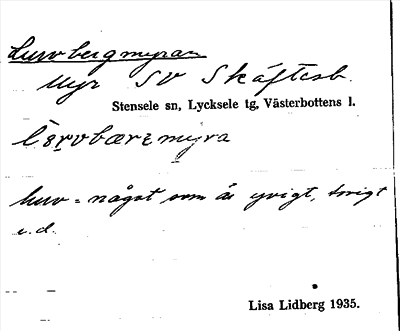 Lurvbergmyran
Myr SV Skäftesb.
Stensele sn, Lycksele tg, Västerbottens l.
lurv = något som är yvigt, torrigt
o.d.
Lisa Lidberg 1935.